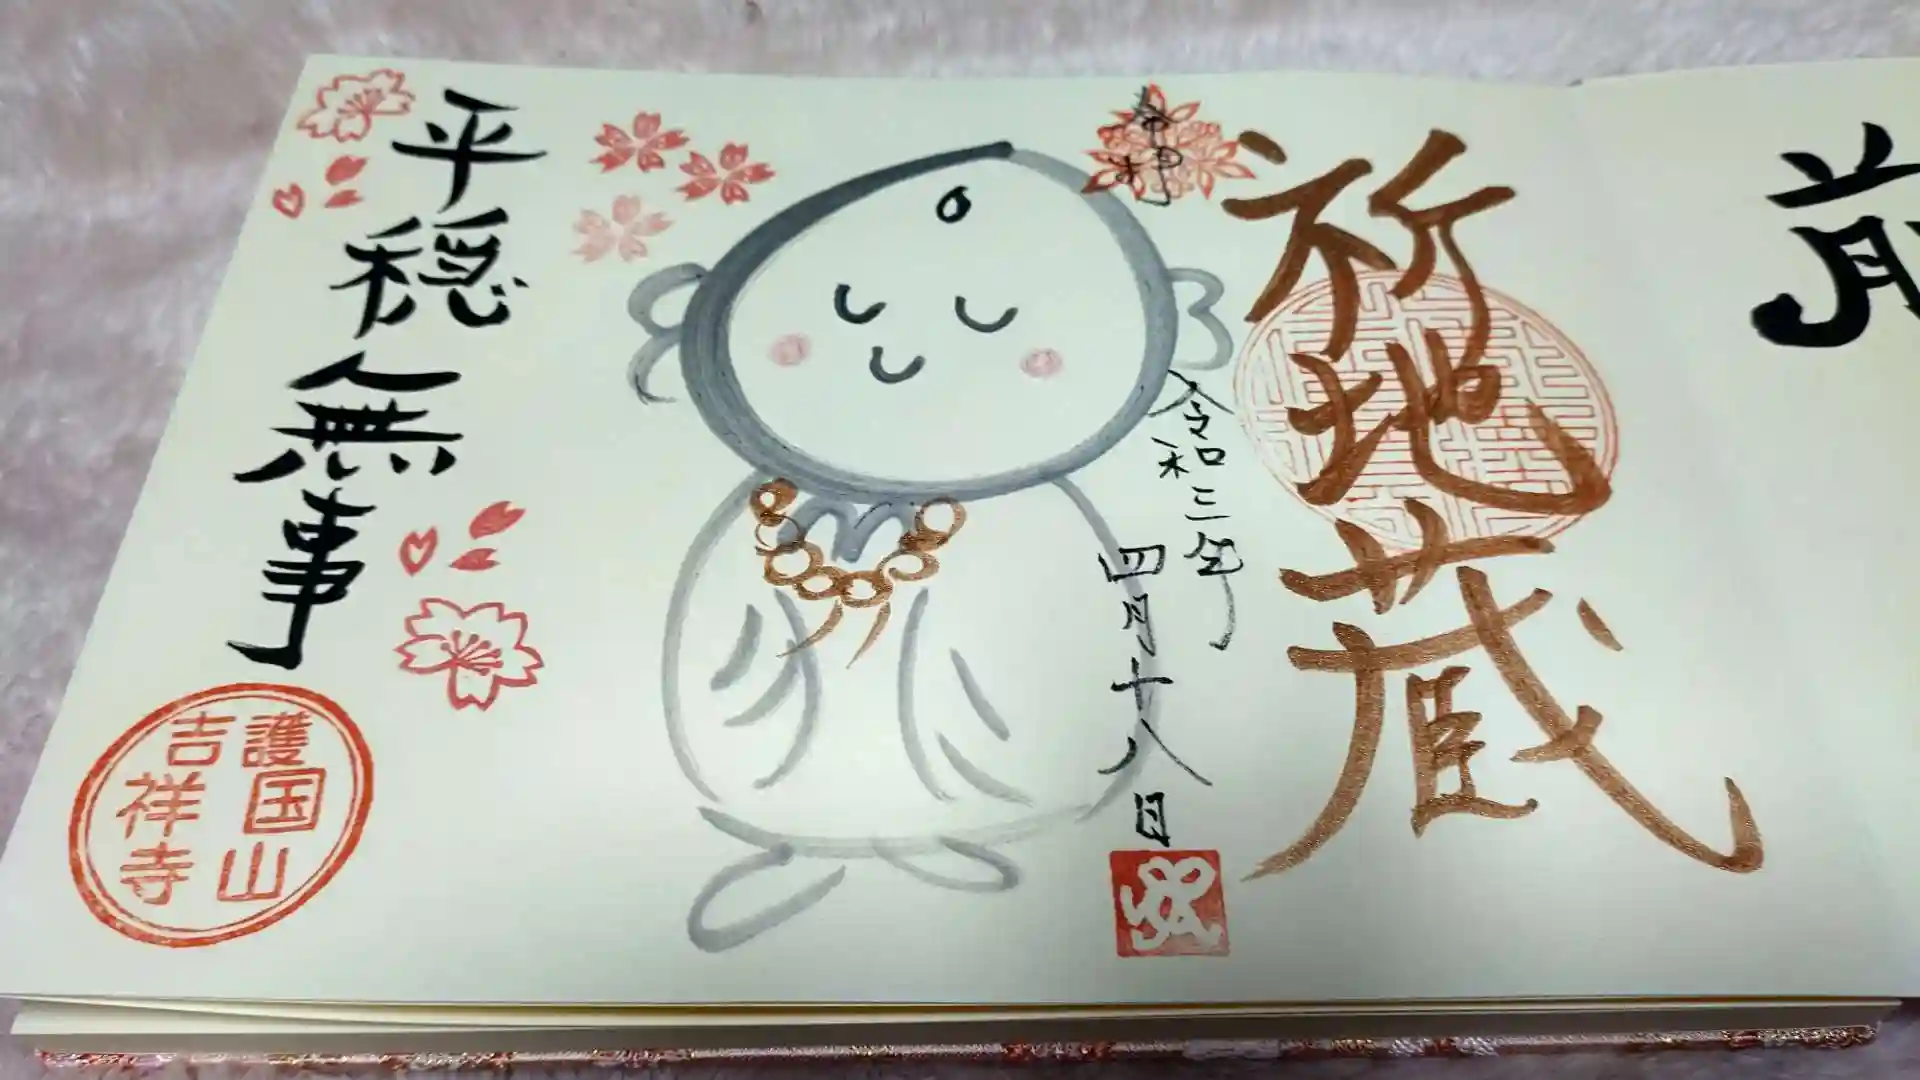 前
祈地蔵
奉拝
令和三年
四月十八日
平穏無事
護国山
吉祥寺